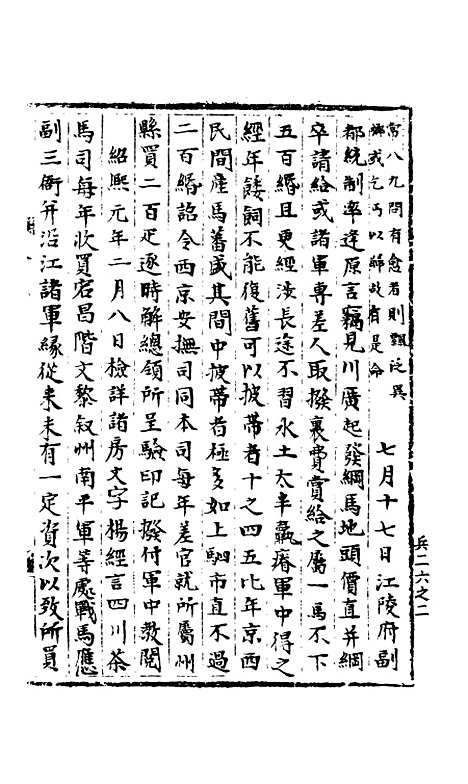 常八九間有愈者則觀泛異
鄉或乞丐以歸故有是命
七月十七日江陵府副
都統制率逢原言竊見川廣起發綱馬地頭價直并綱
卒請給或諸軍專差人取撥裹費賞給之屬一馬不下
五百緡且更經涉長途不習水土太半羸瘠軍中得之
經年餧飼不能復舊可以披帶者十之四五比年京西
民間產馬蕃盛其間中披帶者極多如上駟市直不過
二百緡詔令西京安撫司同本司每年差官就所屬州
縣買二百疋逐時解總領所呈驗印記撥付軍中教閱
紹熙元年二月八日檢詳諸房文字楊經言四川茶
馬司每年收買宕昌階文黎叙州南平軍等處戰馬應
副三衙并沿江諸軍緣從來未有一定資次以致所買
兵二六之二